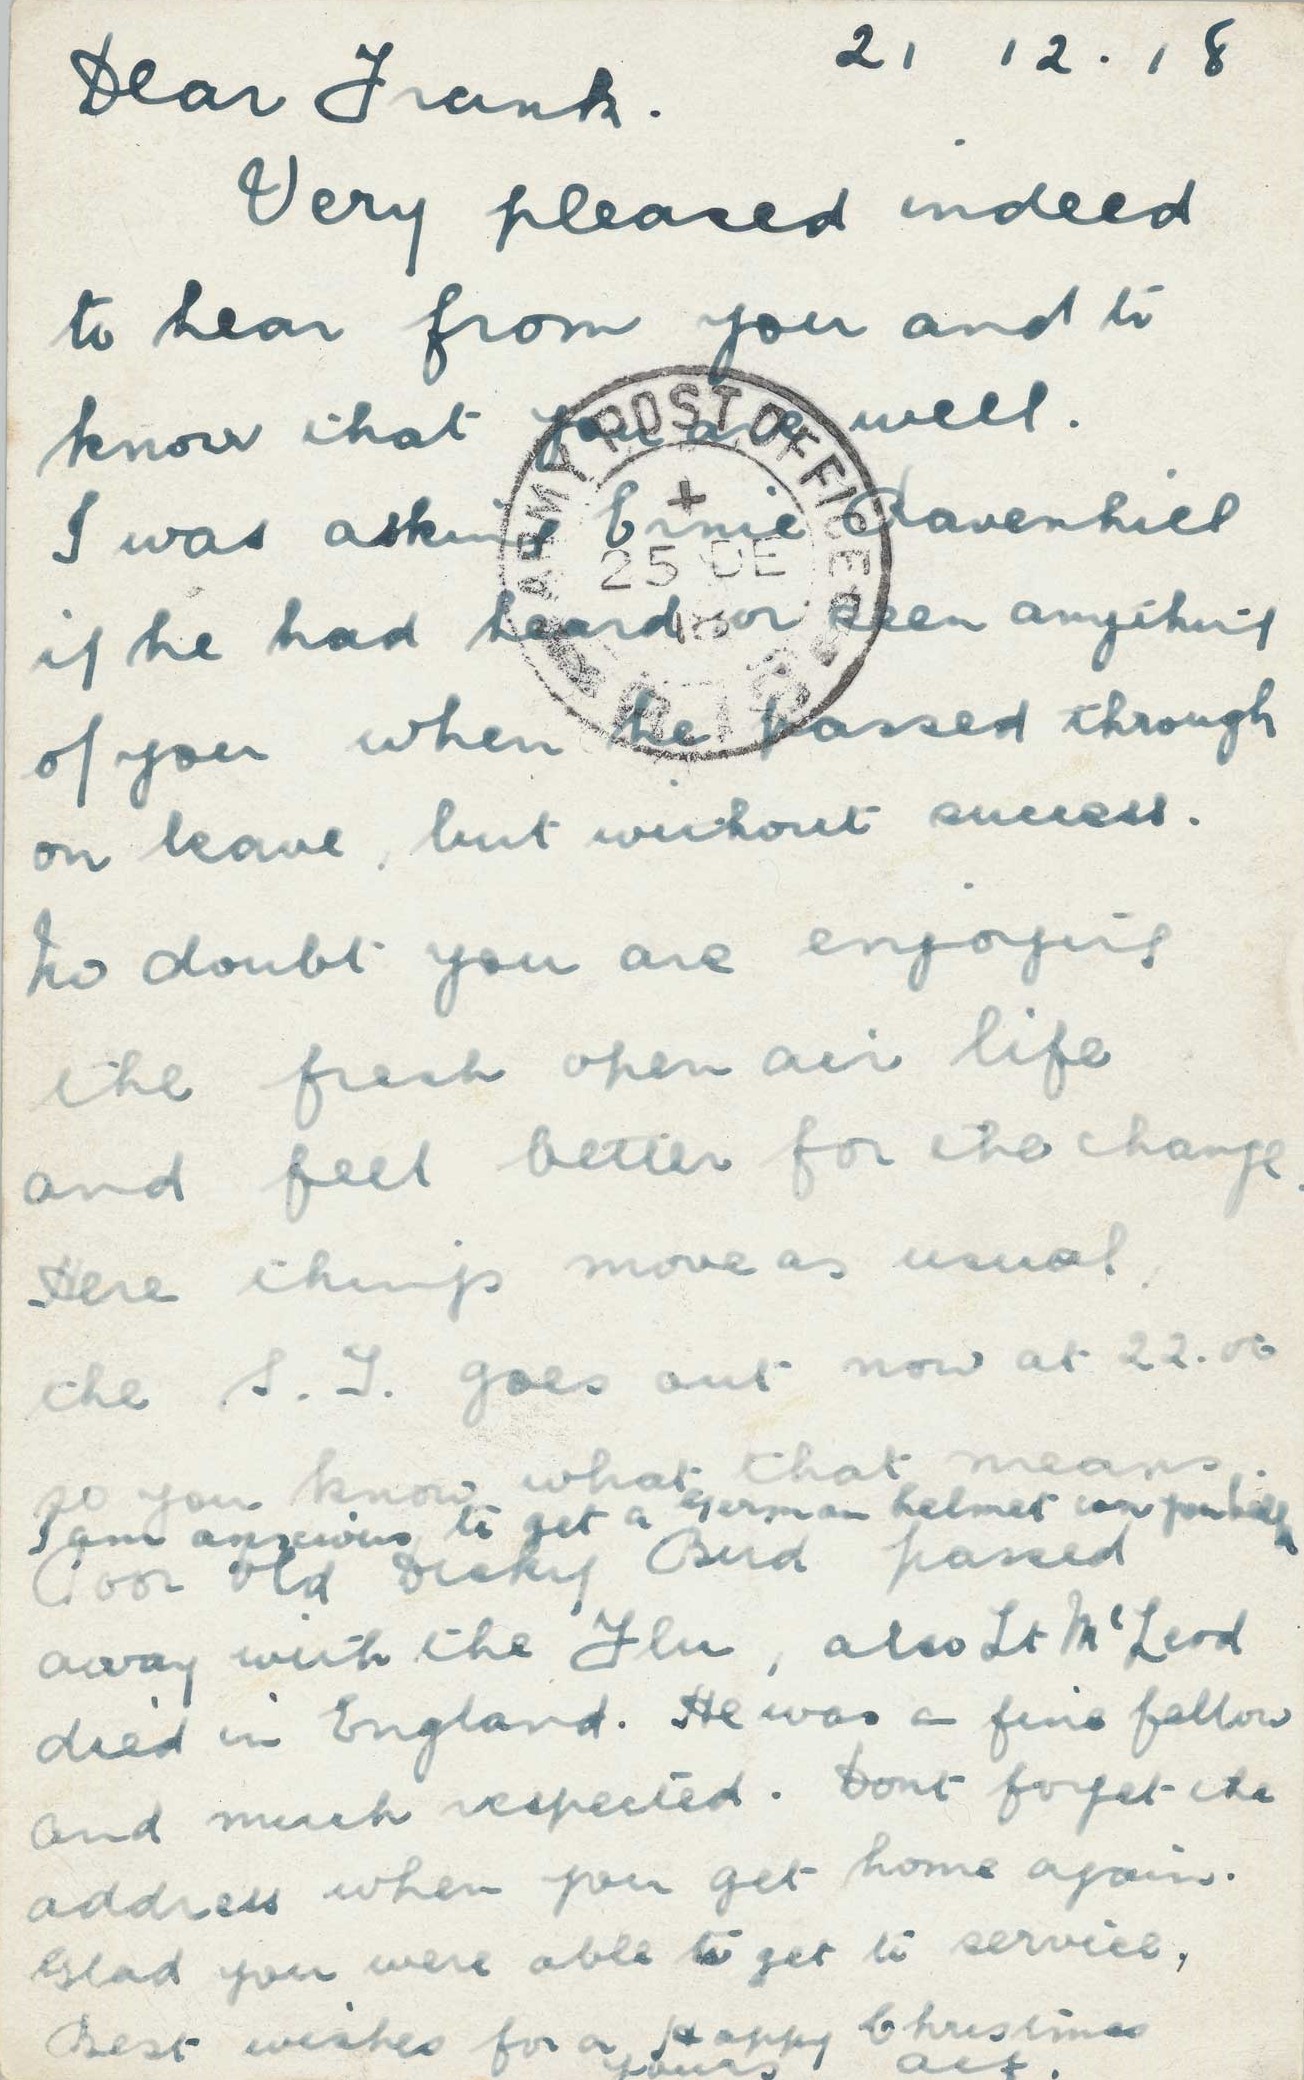 21 12.18
Dear Frank.
Very pleased indeed
to hear from you and to
know that you are well.
I was asking Ernie Ravenhill
if he had heard or seen anything
of you when he passed through
on leave, but without success.
No doubt you are enjoying
the fresh open air life
and feel better for the change.
Here things move as usual,
the S.T. goes out now at 22.00
so you know what that means.
I am anxious to get a German helmet can you help
Poor old Dicky Bird passed
away with the Flu, also Lt McLeod
died in England. He was a fine fellow
and much respected. Dont forget the
address when you get home again.
Glad you were able to get to service,
Best wishes for a Happy Christmas
yours Alf.
ARMY POST OFFICE
+
25 DE
18